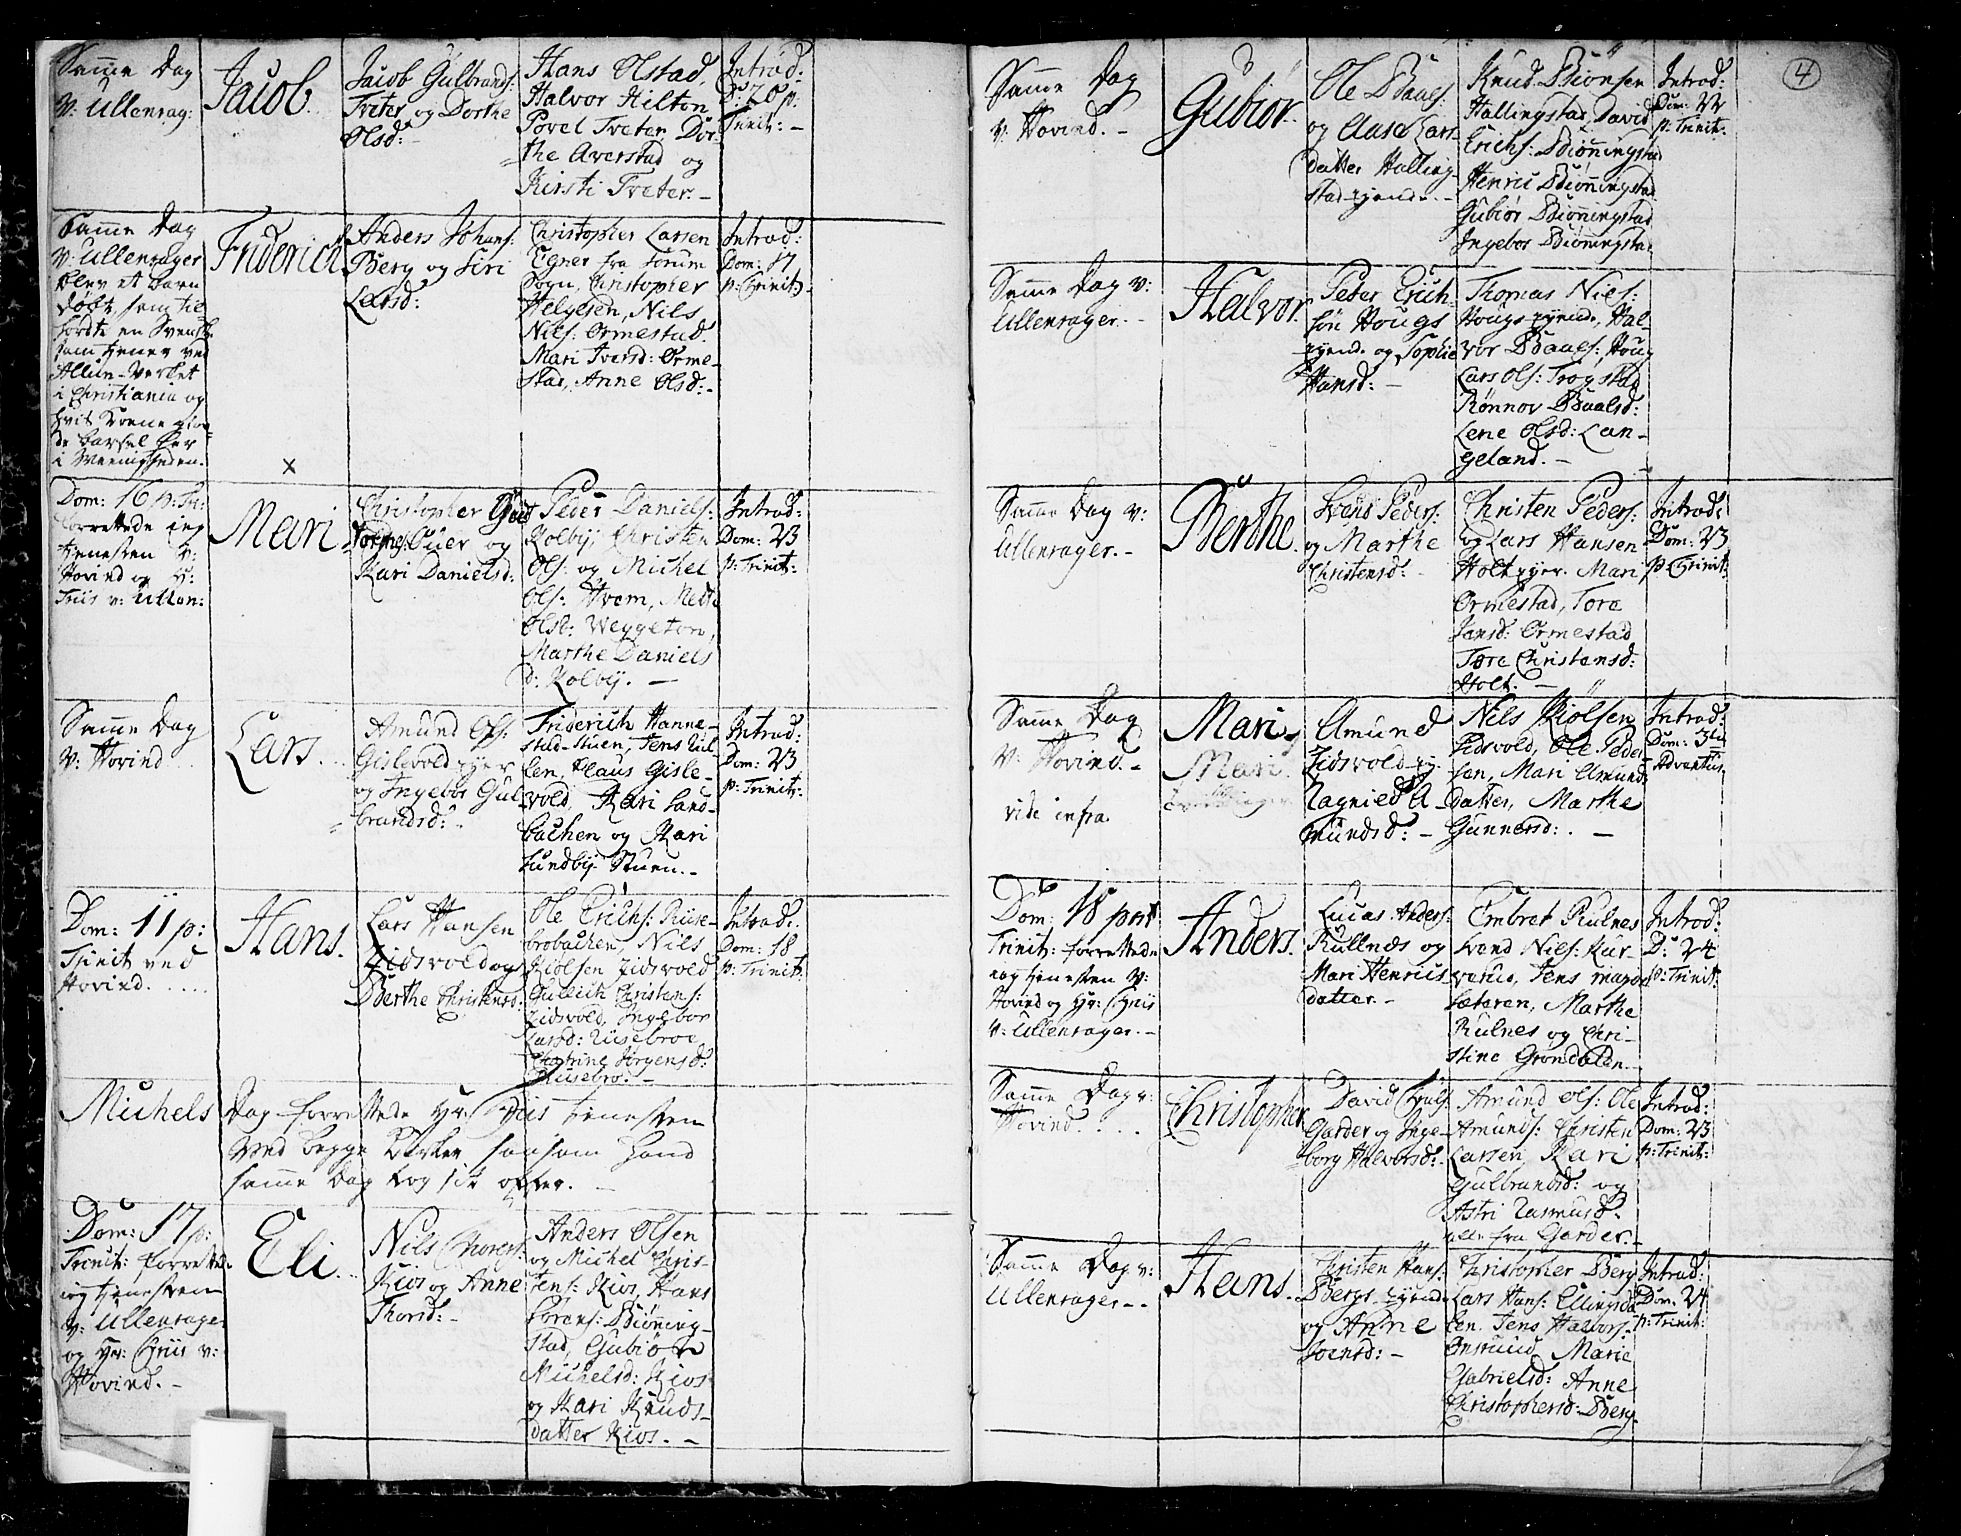 Samme Dag
v: Ullensag:
Jacob
Jacob Gulbrands:
Tveter og Dorthe
Olsd:
Hans Olstad,
Halvor Hilton
Povel Tveter Dor-
the Averstad og
Kirsti Tveter. -
Introd:
D: 20 p:
Trinit: -
Samme Dag
V: Ullensager
blev et barn
døbt, som til-
hørdte en Svensk
som tjener ved
Allun-Verket
i Christiania og
hvis Kone giør-
de barsel her
i Meenigheden.
Friderich
Anders Johans:
Berg og Siri
Larsd:
Christopher Larsen
Egner fra Sørum
Sogn, Christopher
Helgesen, Nils
Nils: Ormestad.
Mari Iversd: Orme-
stad, Anne Olsd: -
Introd:
Dom: 17
p: Trinit:
x
Dom: 16 p: Tr:
forrettede jeg
tjenesten v:
Hovind og Hr:
Friis v: Ullen:
Mari
Christopher
og
Kari Danielsd:
Peder Daniels:
Kolby, Christen
Ols: og Michel
Ols: Hvam, Mette
Olsd: Weggeton,
Marthe Daniels
d: Kolbÿ. -
Introd:
Dom: 23
p: Trinit:
Samme Dag
V: Hovind
Lars.
Amund Ols:
Gislevold ejer
og Ingebor Gul
brandsd: -
Friderich Hanne-
stad-stuen, Jens Kul
len, Klaus Gisle-
vold, Kari Sand-
bachen og Kari
Sundby Stuen. -
Introd:
Dom: 23
p: Trinit:
Dom: 11 p:
Trinit ved
Hovind.
Hans.
Lars Hansen
Jidsvold og
Berthe Christensd.
Ole Erichs: Riise-
brobachen, Nils
Kiølsen Jidsvold
Gullich Christens:
Jidsvold, Ingebor
Larsd: Riisebroe
Chatrine Jørgensd:
Riisebro: -
Introd:
Dom: 18
p: Trinit:
Michels Dag forrettede Hr: Friis tjenesten
ved begge Kirker saasom hand
samme Dag tog sit offer. -
Dom: 17 p:
Trinit: forrettede
jeg tjenesten
V: Ullensager
og Hr: Friis v:
Hovind. -
Eli
Nils Thores:
Kios og Anne
Thorsd: -
Anders Olsen
og Michel Chris-
tens: Kios, Hans
Sørens: Biønning-
stad, Gubiør
Michelsd: Kios
og Kari Knuds-
datter Kios. -
4
Samme Dag
v: Hovind. -
Gubiør.
Ole Baaes:
og Aase Lars
datter Halling-
stad ejende. -
Knud Biønsen
Hallingstad, David
Erichs: Biønningstad
Henric Biønningstad
Gubiør Biønningstad
Ingebor Biønningsta.
Introd:
Dom: 22
p: Trinit:
Samme Dag v:
Ullensager. -
Halvor.
Peder Erich-
søn Hougs
ejend. og Sophie
Hansd: -
Thomas Niels:
Hougs ejende, Hal-
vor Baaes: Houg
Lars Ols: Trogstad
Rønnov Baalsd:
Lene Olsd: Lan-
geland. -
Samme Dag v:
Ullensager. -
Berthe.
Svens Peders:
og Marthe
Christensd:
Christen Peders:
og Lars Hansen
Holt ejer. Mari
Ormestad, Tore
Jansd: Ormestad
Tore Christensd:
Holt. -
Introd:
Dom: 23
p: Trinit:
Samme Dag
V: Hovind. -
vide infra
Mari
Mari
Amund
Jidsvold ej-
Ragnild A-
mundsd: -
Nils Kiølsen
Jidsvold, Ole Peder
sen, Mari Amunds
datter, Marthe
Gunnersd: -
Introd:
Dom: 3tia
Adventus
Dom: 18 post
Trinit: forrettede
jeg tjenesten v:
Hovind og Hr: Friis
v: Ullensager. -
Anders.
Lucas Anders:
Kullnes og
Mari Henrics-
datter. -
Embret Kulnes
Svend Nils: Kur-
verud, Jens
sæteren, Marthe
Kulnes og Chri-
stine Grøndalen.
Introd:
D: 24
p: Trinit:
Samme Dag v:
Hovind.
Christopher
David
Garder og Inge-
borg Halvorsd: -
Amund Ols: Ole
Amunds: Christen
Larsen, Kari
Gulbrandsd: og
Astri Rasmusd:
alle fra Garder. -
Introd:
Dom: 23
p: Trinit:
Samme Dag v:
Ullensager. -
Hans.
Christen Hans:
Bergs ejende
og Anne
Svensd: -
Christopher Berg
Lars Hans: Ellingsda
len. Jens Halvors:
Onsrud, Marie
Gabrielsd: Anne
Christophersd: Berg.
Introd:
Dom: 24
p: Trinit: